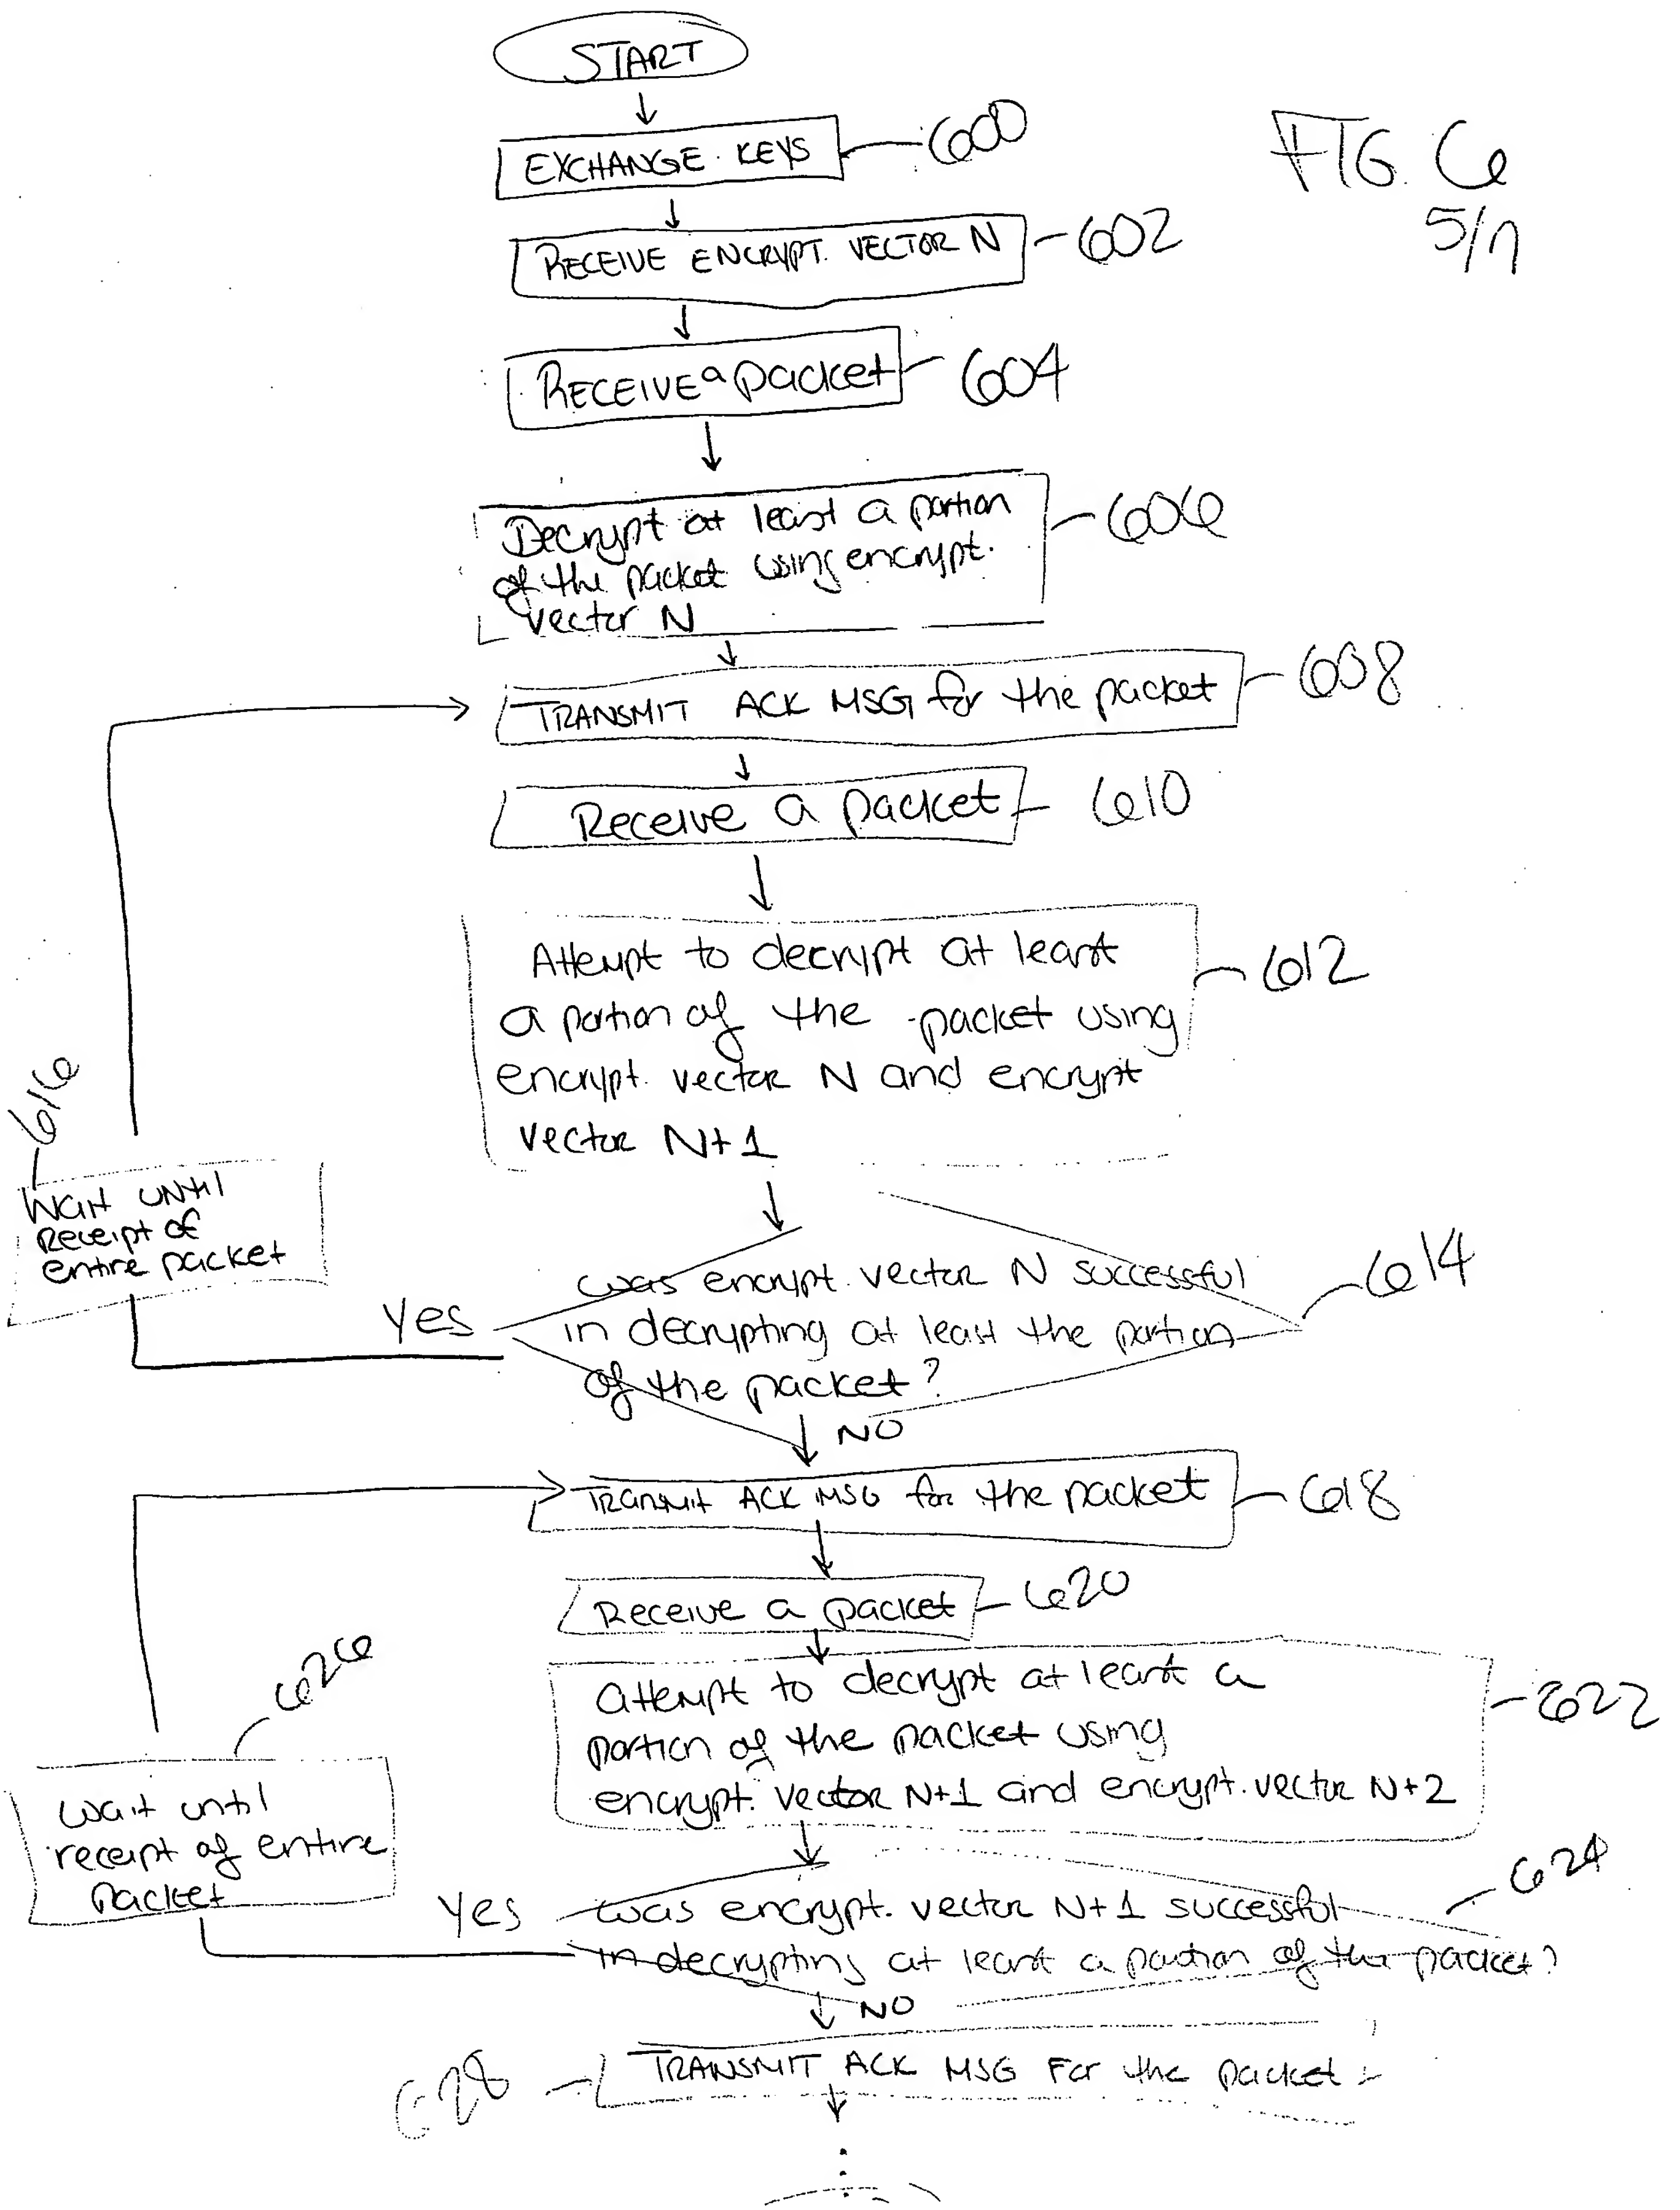 START
EXCHANGE KEYS
600
FIG. 6
5/7
RECEIVE ENCRYPT. VECTOR N
602
RECEIVE a packet
604
Decrypt at least a portion
of the packet using encrypt.
vector N
606
TRANSMIT ACK MSG for the packet
608
Receive a packet
610
Attempt to decrypt at least
a portion of the packet using
encrypt. vector N and encrypt
vector N+1
612
616
Wait until
receipt of
entire packet
Yes
was encrypt. vector N successful
in decrypting at least the portion
of the packet?
614
NO
Transmit ACK MSG for the packet
618
Receive a packet
620
attempt to decrypt at least a
portion of the packet using
encrypt. vector N+1 and encrypt. vector N+2
622
626
wait until
receipt of entire
packet
Yes
was encrypt. vector N+1 successful
in decrypting at least a portion of the packet?
624
NO
TRANSMIT ACK MSG For the packet
628